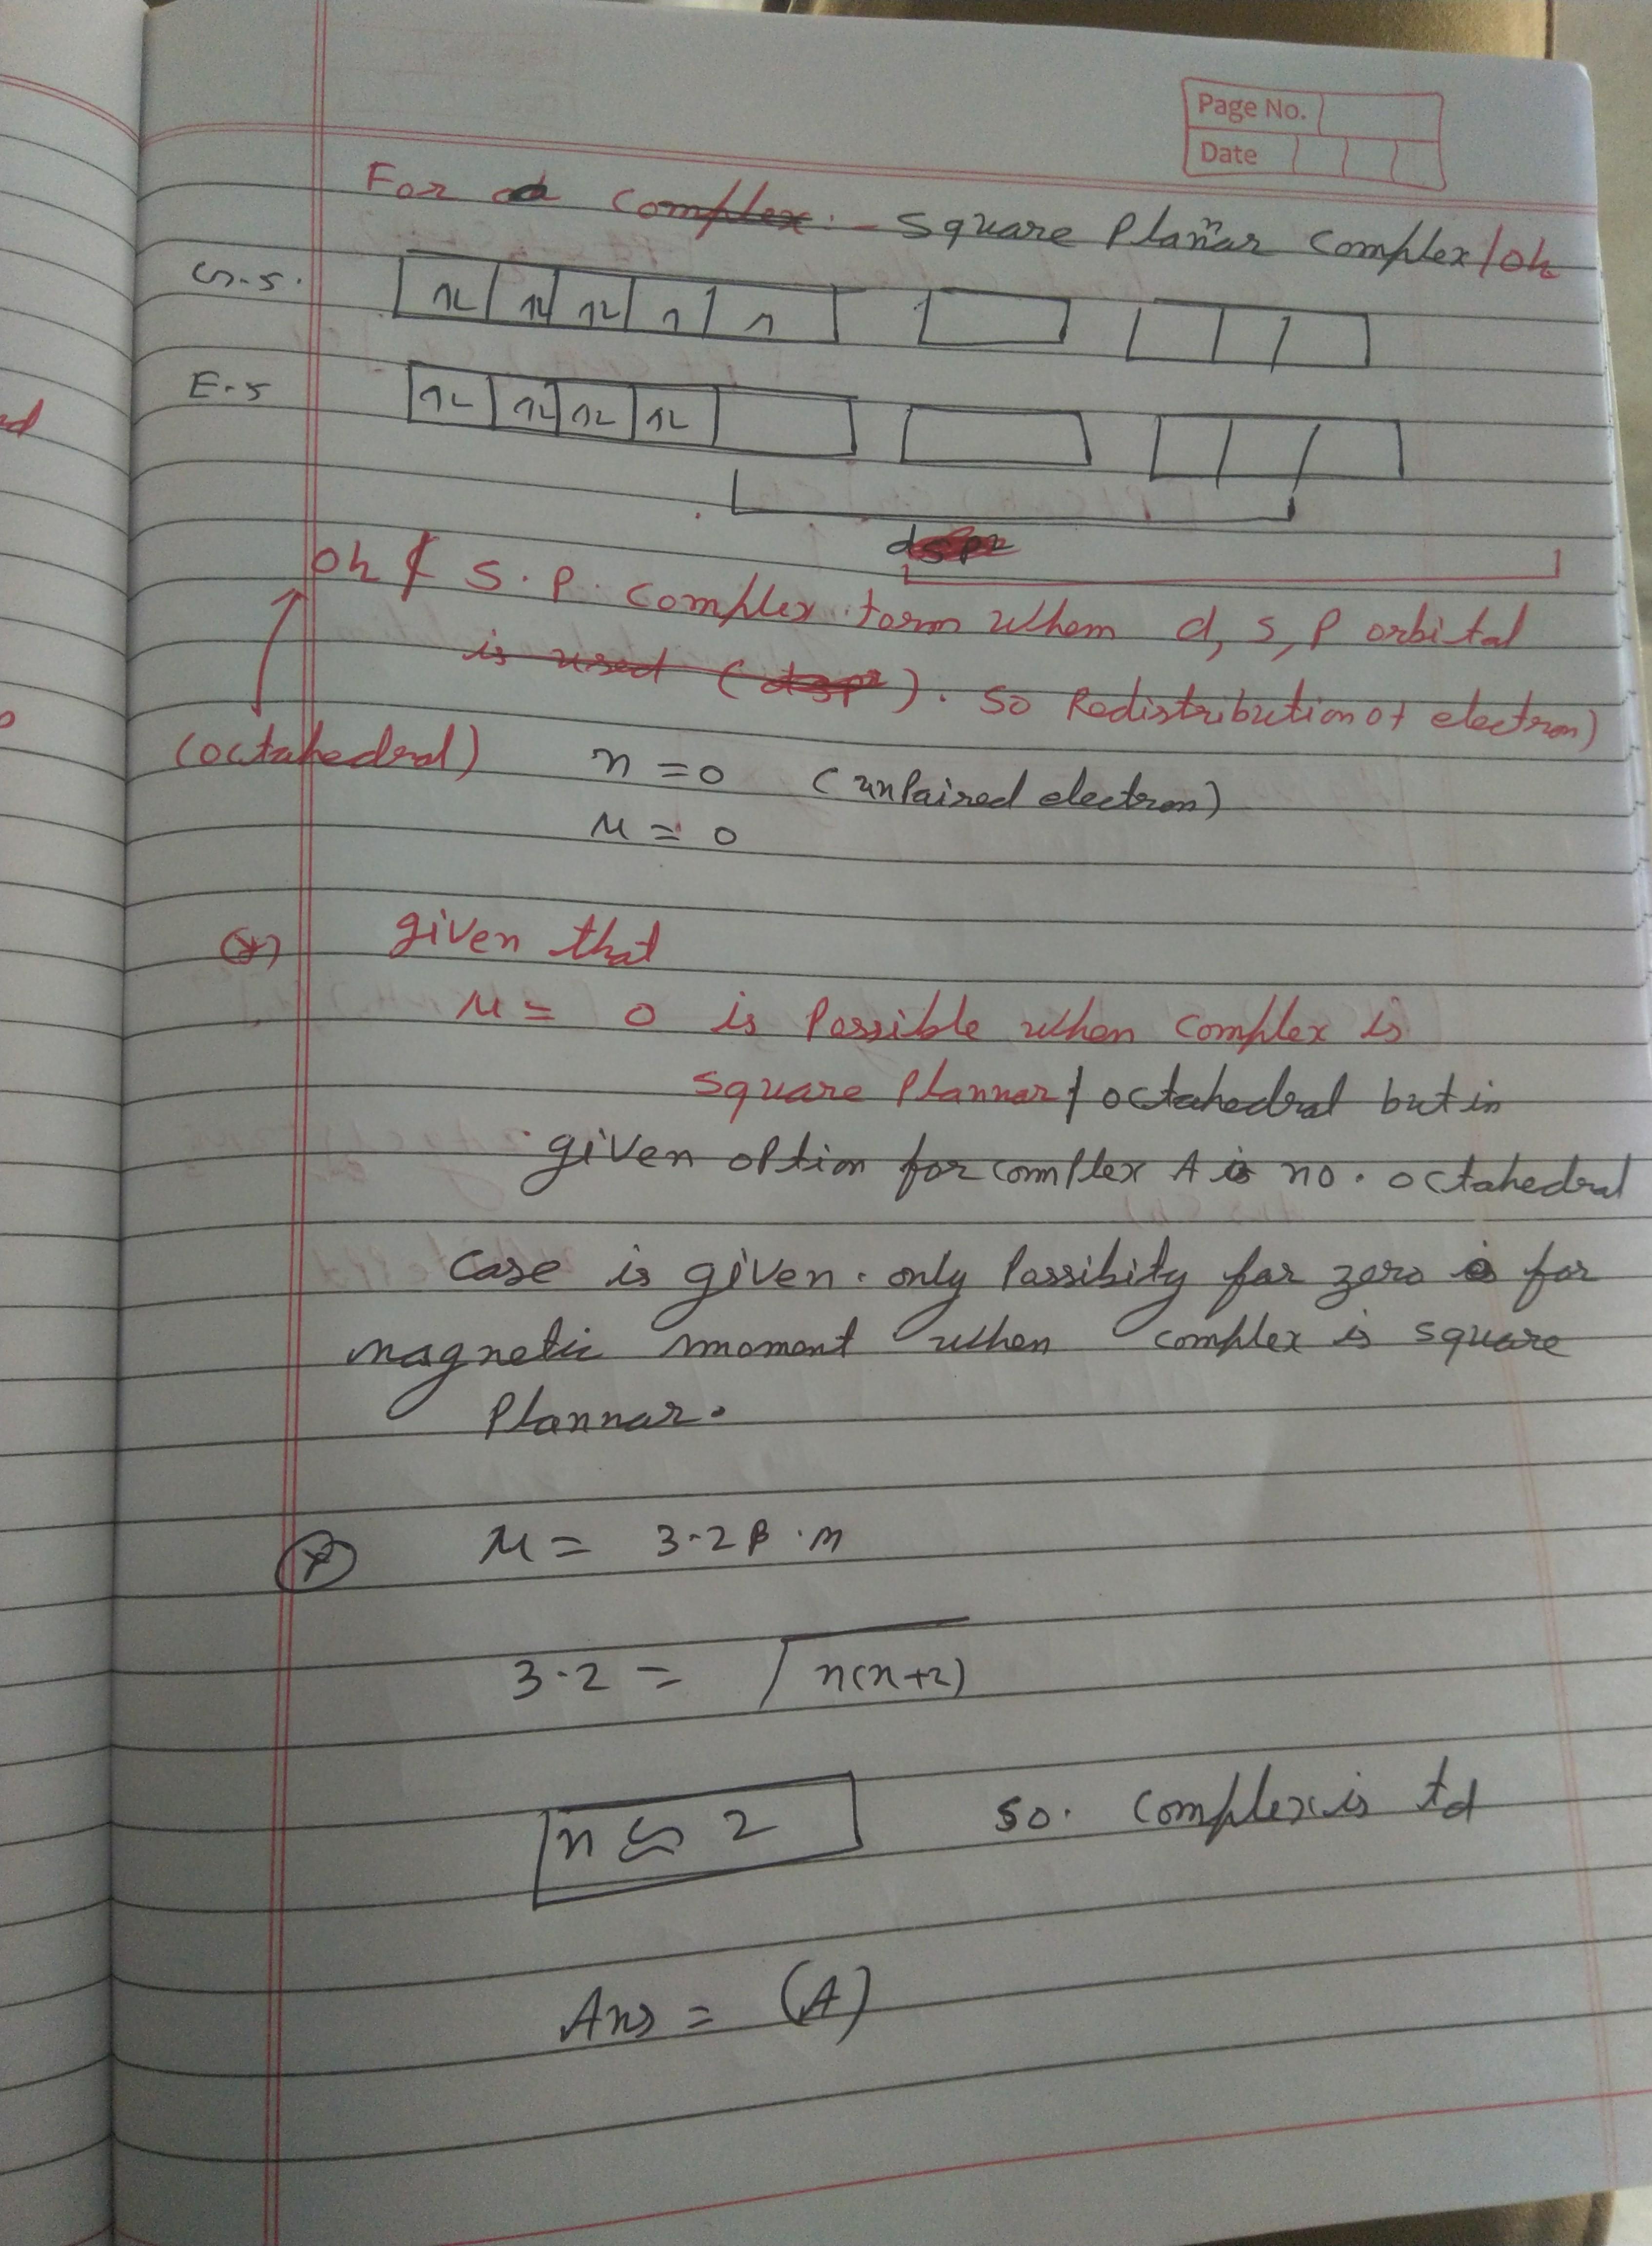 Page No.
Date
For complex :- Square Plannar Complex/Oh
G.S.
E.S
dsp2
Oh & S.P. Complex form when d, s, p orbital
is used (dsp2). So Redistribution of electron)
(octahedral) n = 0 (unpaired electron)
μ = 0
given that
μ = 0 is Possible when complex is
square Plannar / octahedral but in
given option for complex A is no. octahedral
Case is given. only Possibity for zero is for
magnetic moment when complex is square
Plannar.
μ = 3.2 B.M
3.2 = √n(n+2)
n ≈ 2 so. complex is td
Ans = (A)